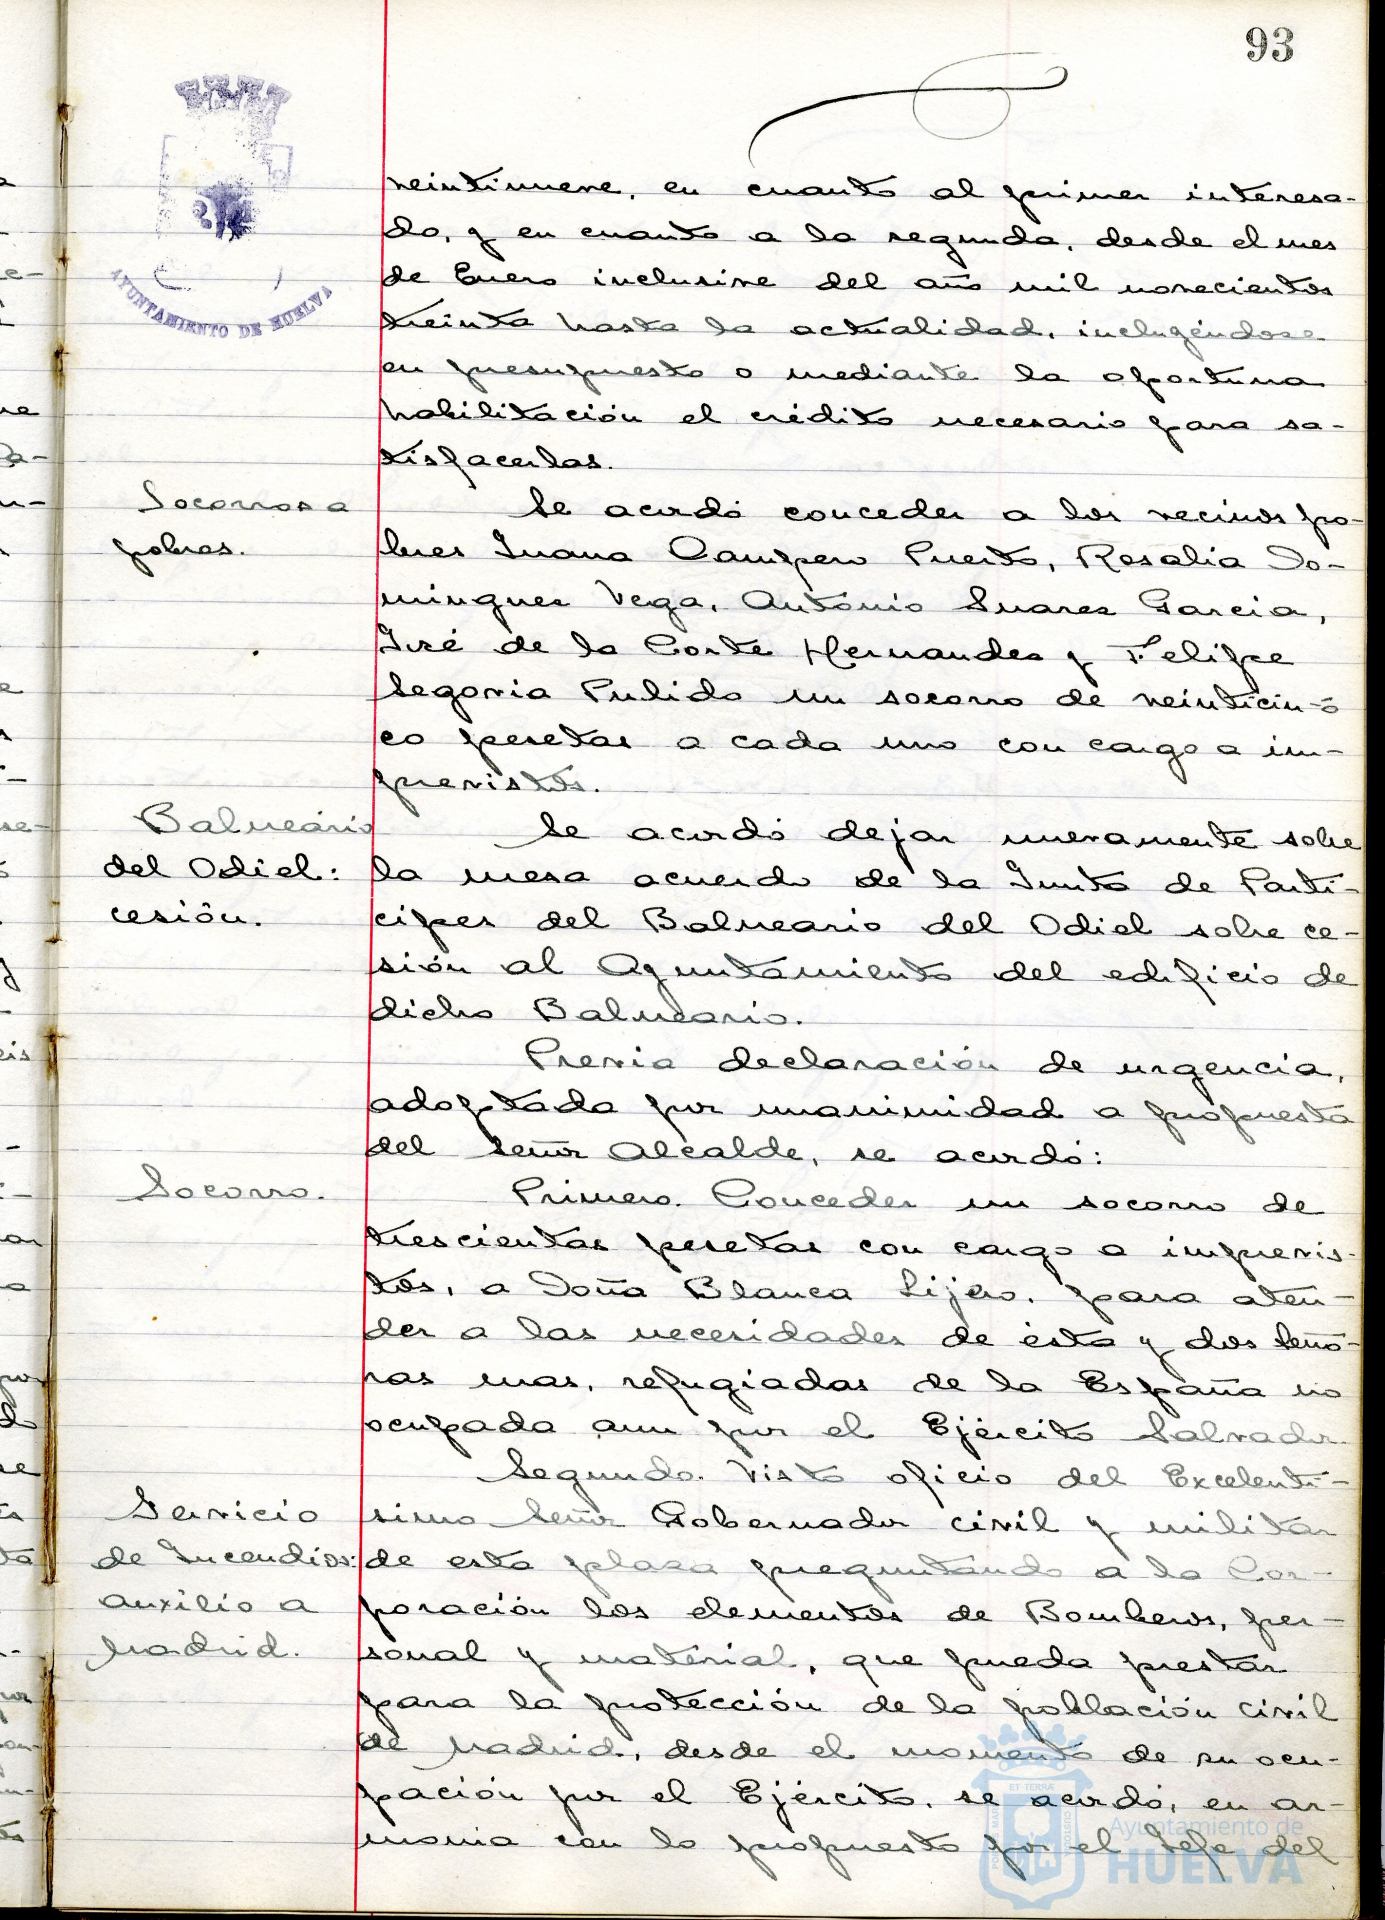 93
AYUNTAMIENTO DE HUELVA
veintinueve, en cuanto al primer interesa-
do, y en cuanto a la segunda, desde el mes
de Enero inclusive del año mil novecientos
treinta hasta la actualidad, incluyéndose
en presupuesto o mediante la oportuna
habilitación el crédito necesario para sa-
tisfacerlas.
Socorros a
pobres.
Se acordó conceder a los vecinos po-
bres Juana Campero Puerto, Rosalia Do-
minguez Vega, Antonio Suarez Garcia,
José de la Corte Hernandez y Felipe
Segovia Pulido un socorro de veinticin-
co pesetas a cada uno con cargo a im-
previstos.
Balneario
del Odiel:
cesión.
Se acordó dejar nuevamente sobre
la mesa acuerdo de la Junta de Parti-
cipes del Balneario del Odiel sobre ce-
sión al Ayuntamiento del edificio de
dicho Balneario.
Previa declaración de urgencia,
adoptada por unanimidad a propuesta
del Señor Alcalde, se acordó:
Socorro.
Primero. Conceder un socorro de
trescientas pesetas con cargo a imprevis-
tos, a Doña Blanca Lijero, para aten-
der a las necesidades de ésta y dos Seño-
ras mas, refugiadas de la España no
ocupada aun por el Ejército Salvador.
Servicio
de Incendios:
auxilio a
Madrid.
Segundo. Visto oficio del Excelentí-
simo Señor Gobernador civil y militar
de esta plaza preguntando a la Cor-
poración los elementos de Bomberos, per-
sonal y material, que pueda prestar
para la protección de la población civil
de Madrid, desde el momento de su ocu-
pación por el Ejército, se acordó, en ar-
monia con lo propuesto por el Jefe del
Ayuntamiento de
HUELVA